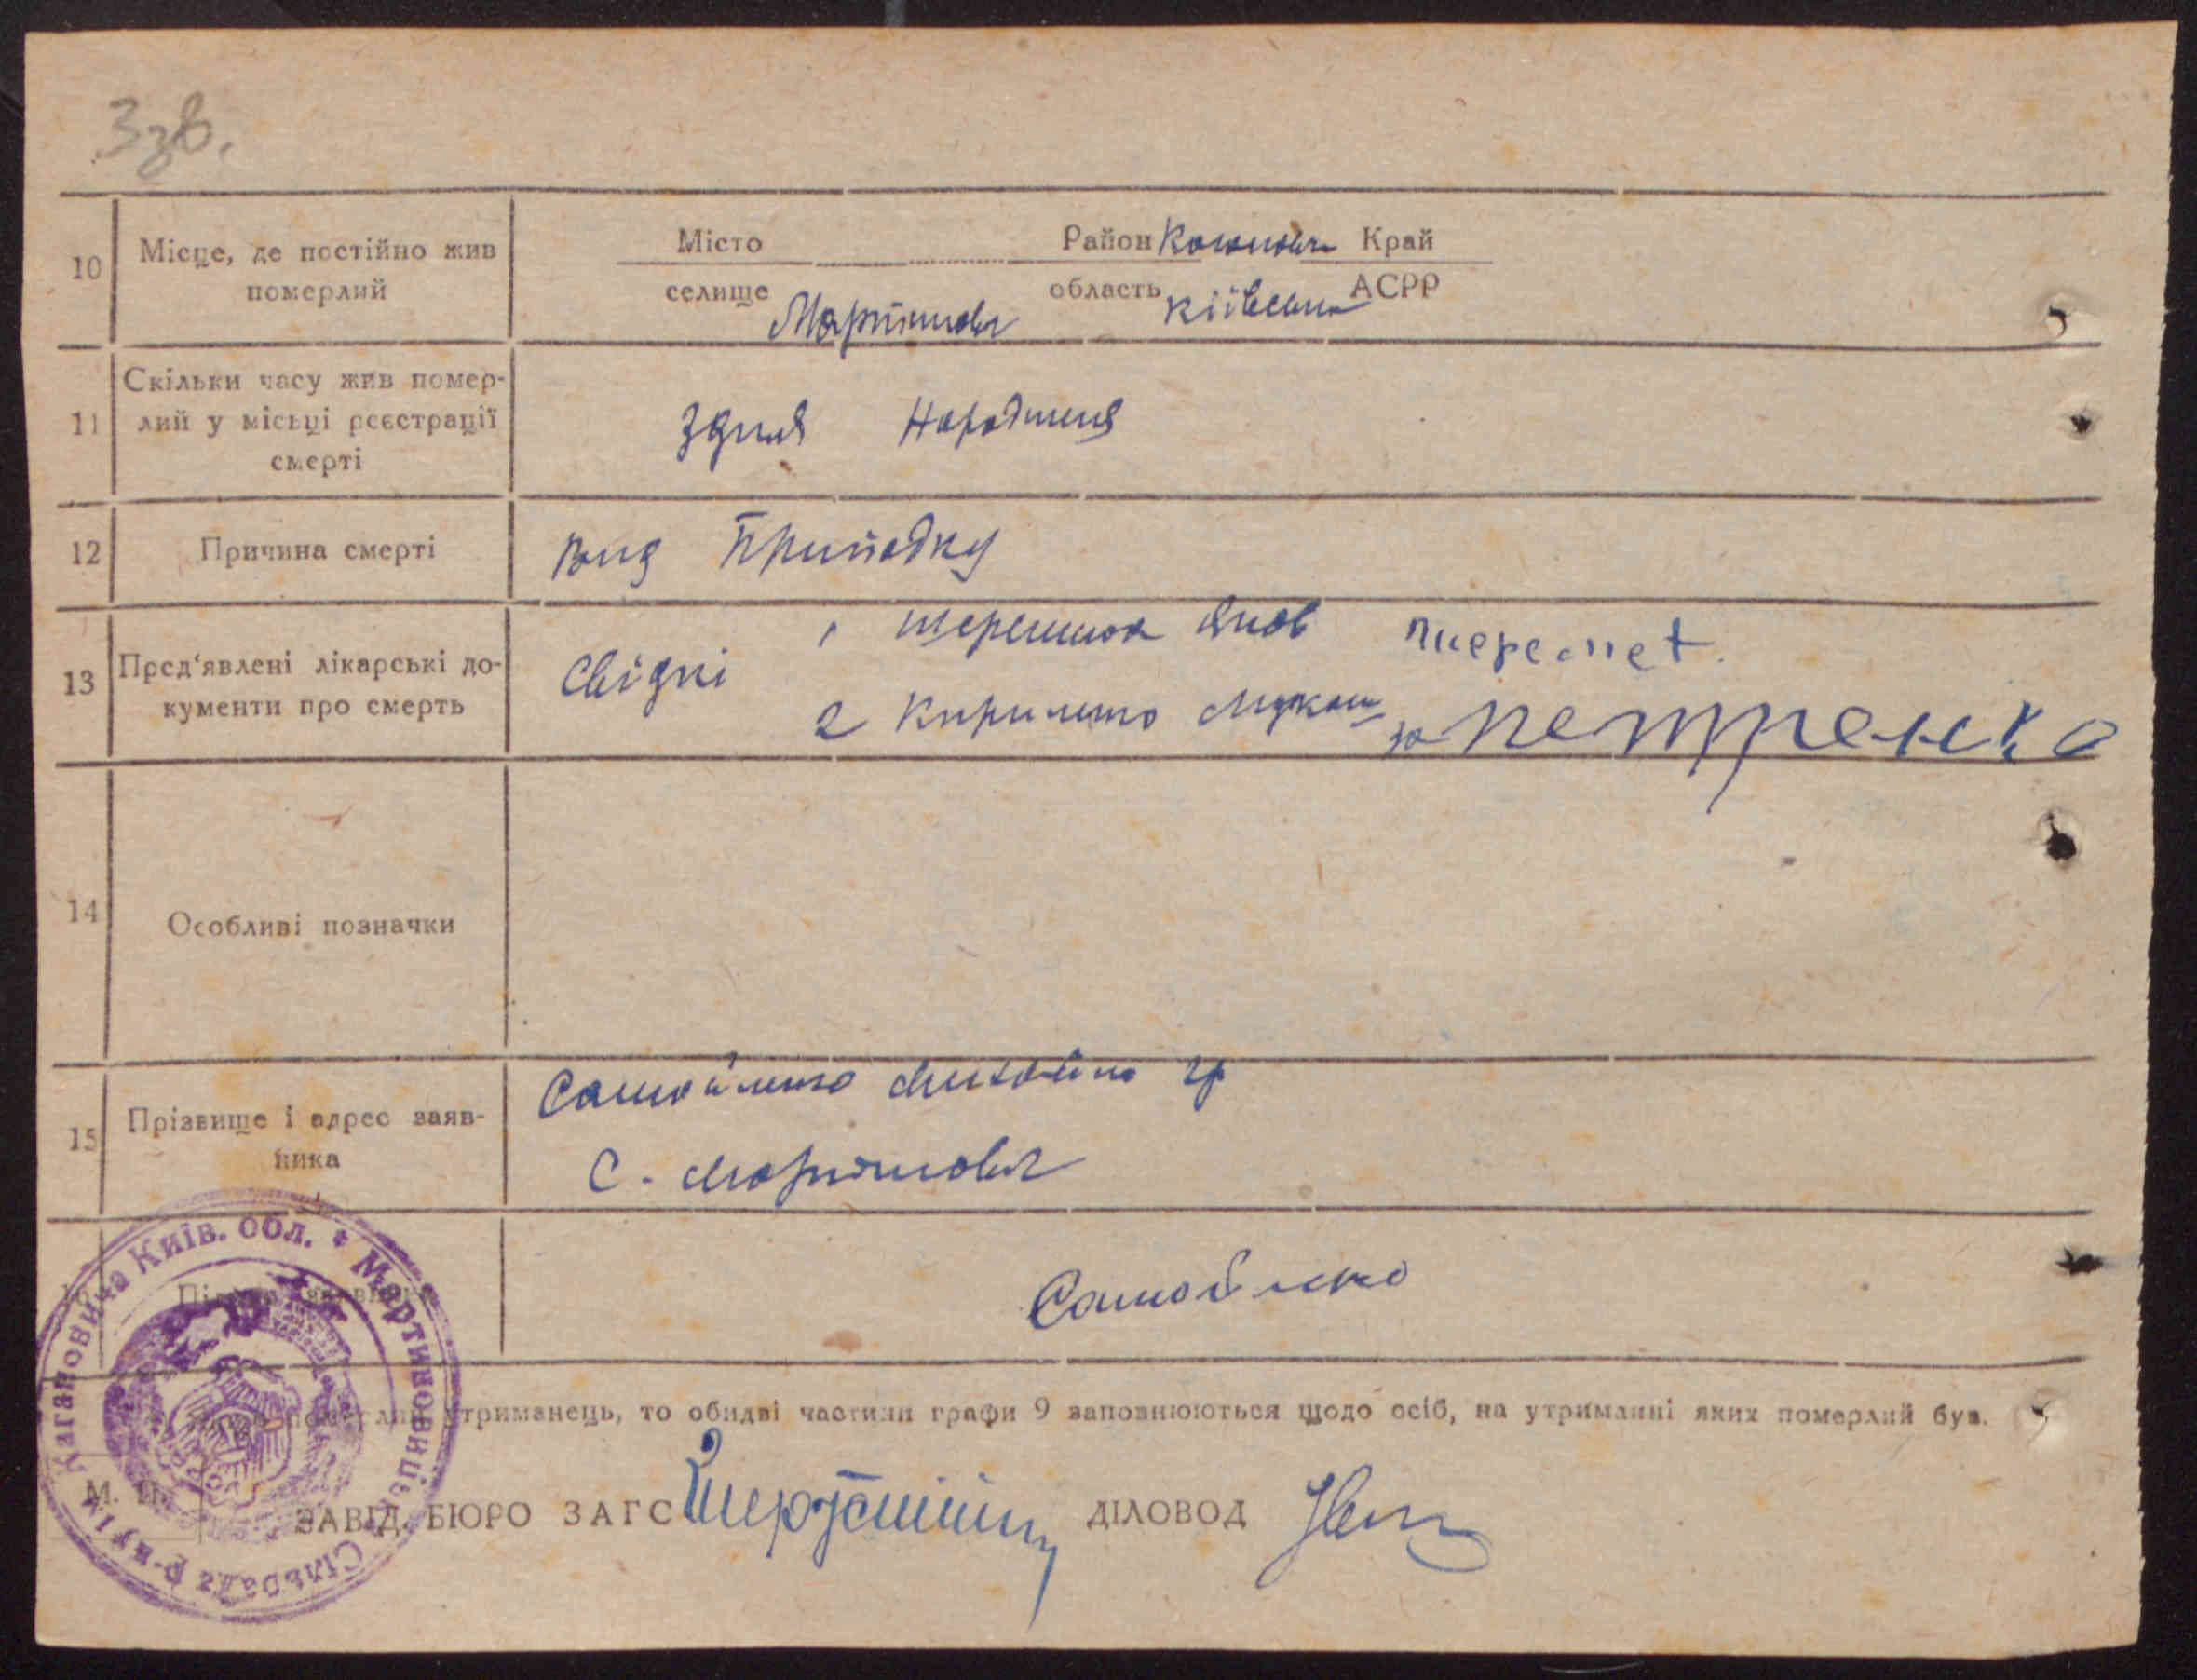 3зв.
10 Місце, де постійно жив померлий
Місто Район Край
селище Мартинович область Київська АСРР
11 Скільки часу жив помер-
лий у місьці реєстрації
смерті
Здня Народження
12 Причина смерті Вид Припадку
13 Пред'явлені лікарські до-
кументи про смерть
Свідкі 1 Терешко Яков
2 Кириленко
за Петренко
14 Особливі позначки
15 Прізвище і адрес заяв-
ника
Самойленко Михайло гр
С. Мартинович
Самойленко
утриманець, то обидві частини графи 9 заповнюються щодо осіб, на утриманні яких померлий був.
М. П. ЗАВІД. БЮРО ЗАГС ДІЛОВОД
Кагановича Київ. обл. * Мартиновицьк Сільрада р-ну ім